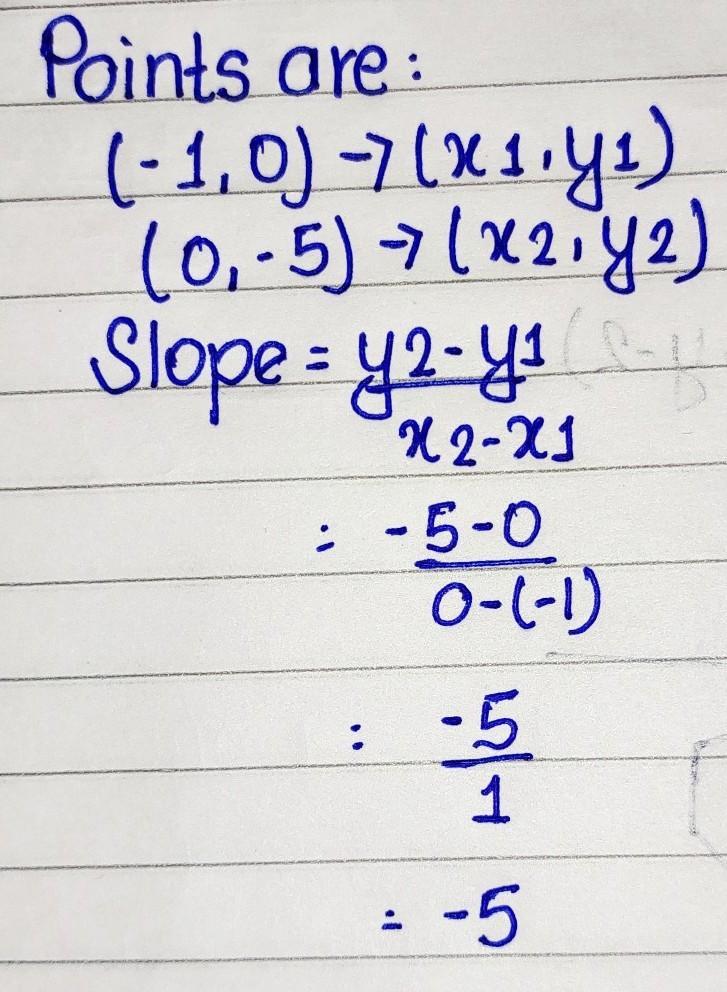 Points are:
(-1,0) → (x1,y1)
(0,-5) → (x2,y2)
Slope = y2-y1
x2-x1
= -5-0
0-(-1)
= -5
1
= -5